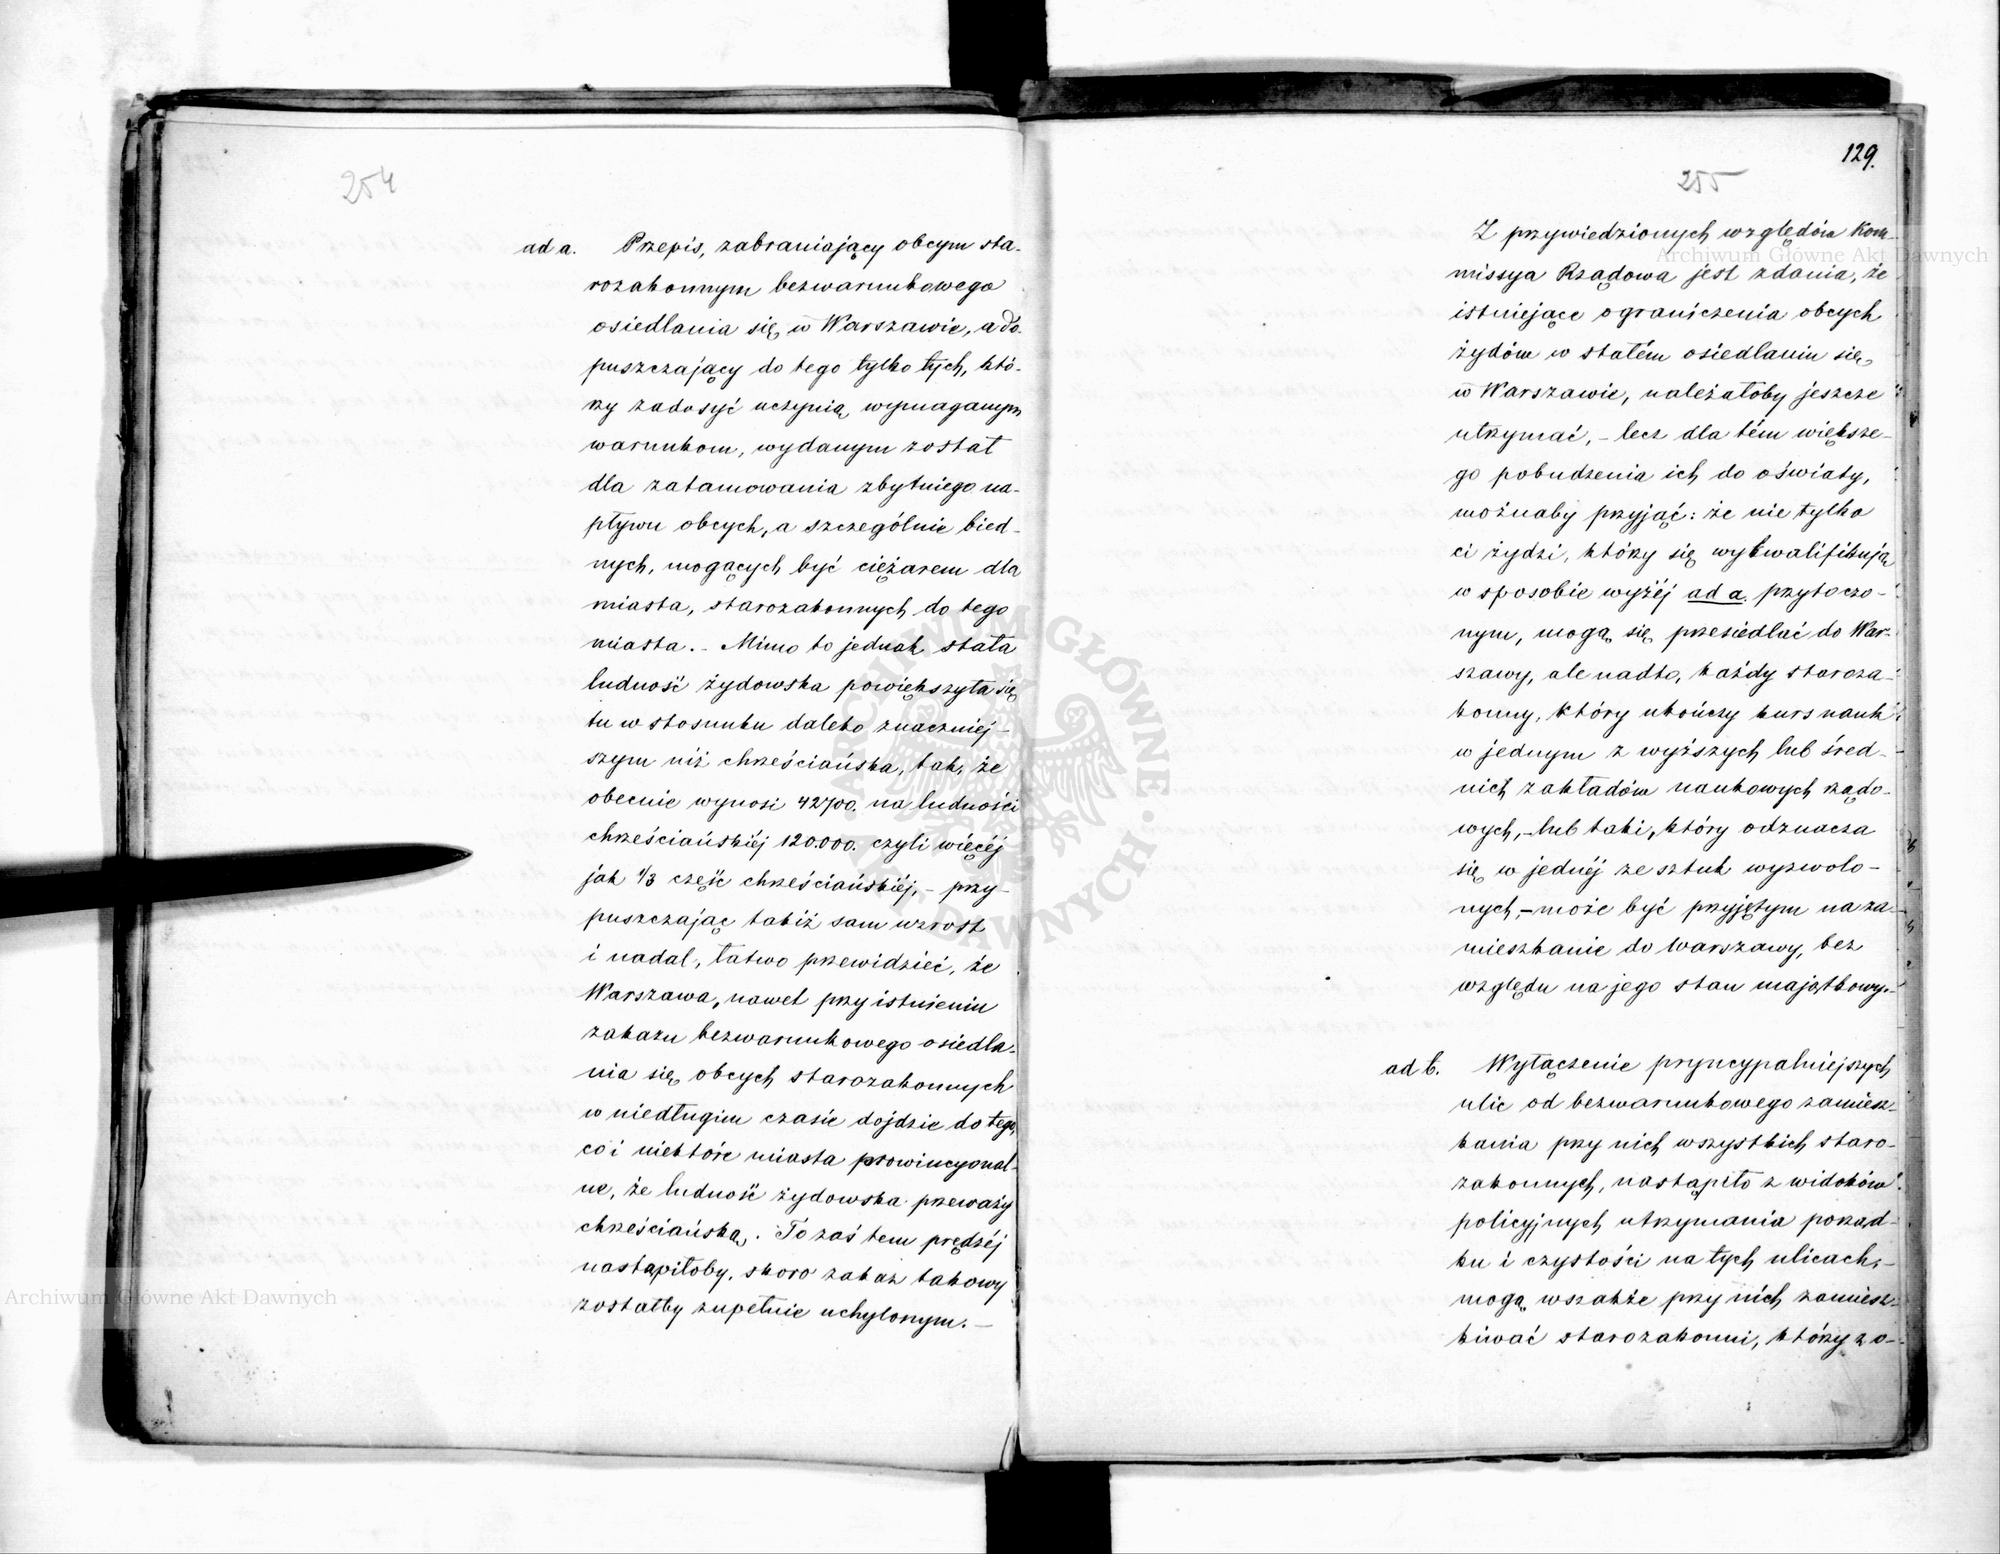 254
ad a. Przepis, zabraniający obcym sta-
rozakonnym bezwarunkowego
osiedlania się w Warszawie, a do-
puszczający do tego tylko tych, któ-
rzy zadosyć uczynią wymaganym
warunkom, wydanym został
dla zatamowania zbytniego na-
pływu obcych, a szczególnie bied-
nych, mogących być ciężarem dla
miasta, starozakonnych do tego
miasta. - Mimo to jednak stała
ludność żydowska powiększyła się
tu w stosunku daleko znaczniej-
szym niż chrześciańska, tak, że
obecnie wynosi 42700. na ludności
chrześciańskiéj 120.000. czyli więcéj
jak 1/3 część chrześciańskiéj, - przy-
puszczając takiż sam wzrost
i nadal, łatwo przewidzieć, że
Warszawa, nawet przy istnieniu
zakazu bezwarunkowego osiedla-
nia się obcych starozakonnych
w niedługim czasie dojdzie do tego,
co i niektóre miasta prowincyonal-
ne, że ludność żydowska przeważy
chrześciańską. To zaś tem prędzéj
nastąpiłoby, skoro zakaz takowy
zostałby zupełnie uchylonym. -
129.
255
Z przywiedzionych względów Kom-
missya Rządowa jest zdania, że
istniejące ograniczenia obcych
żydów w stałém osiedlaniu się
w Warszawie, należałoby jeszcze
utrzymać, - lecz dla tém większe-
go pobudzenia ich do oświaty,
możnaby przyjąć: że nie tylko
ci żydzi, którzy się wykwalifikują
w sposobie wyżéj ad a. przytoczo-
nym, mogą się przesiedlać do War-
szawy, ale nadto, każdy staroza-
konny, który ukończy kurs nauk
w jednym z wyższych lub śred-
nich zakładów naukowych rządo-
wych, - lub taki, który odznacza
się w jednéj ze sztuk wyzwolo-
nych, - może być przyjętym na za-
mieszkanie do Warszawy, bez
względu na jego stan majątkowy. -
ad b. Wyłączenie pryncypalniejszych
ulic od bezwarunkowego zamiesz-
kania przy nich wszystkich staro-
zakonnych, nastąpiło z widoków
policyjnych utrzymania porząd-
ku i czystości na tych ulicach, -
mogą wszakże przy nich zamiesz-
kiwać starozakonni, którzy zo-
Archiwum Główne Akt Dawnych
Archiwum Główne Akt Dawnych
ARCHIWUM GŁÓWNE AKT DAWNYCH